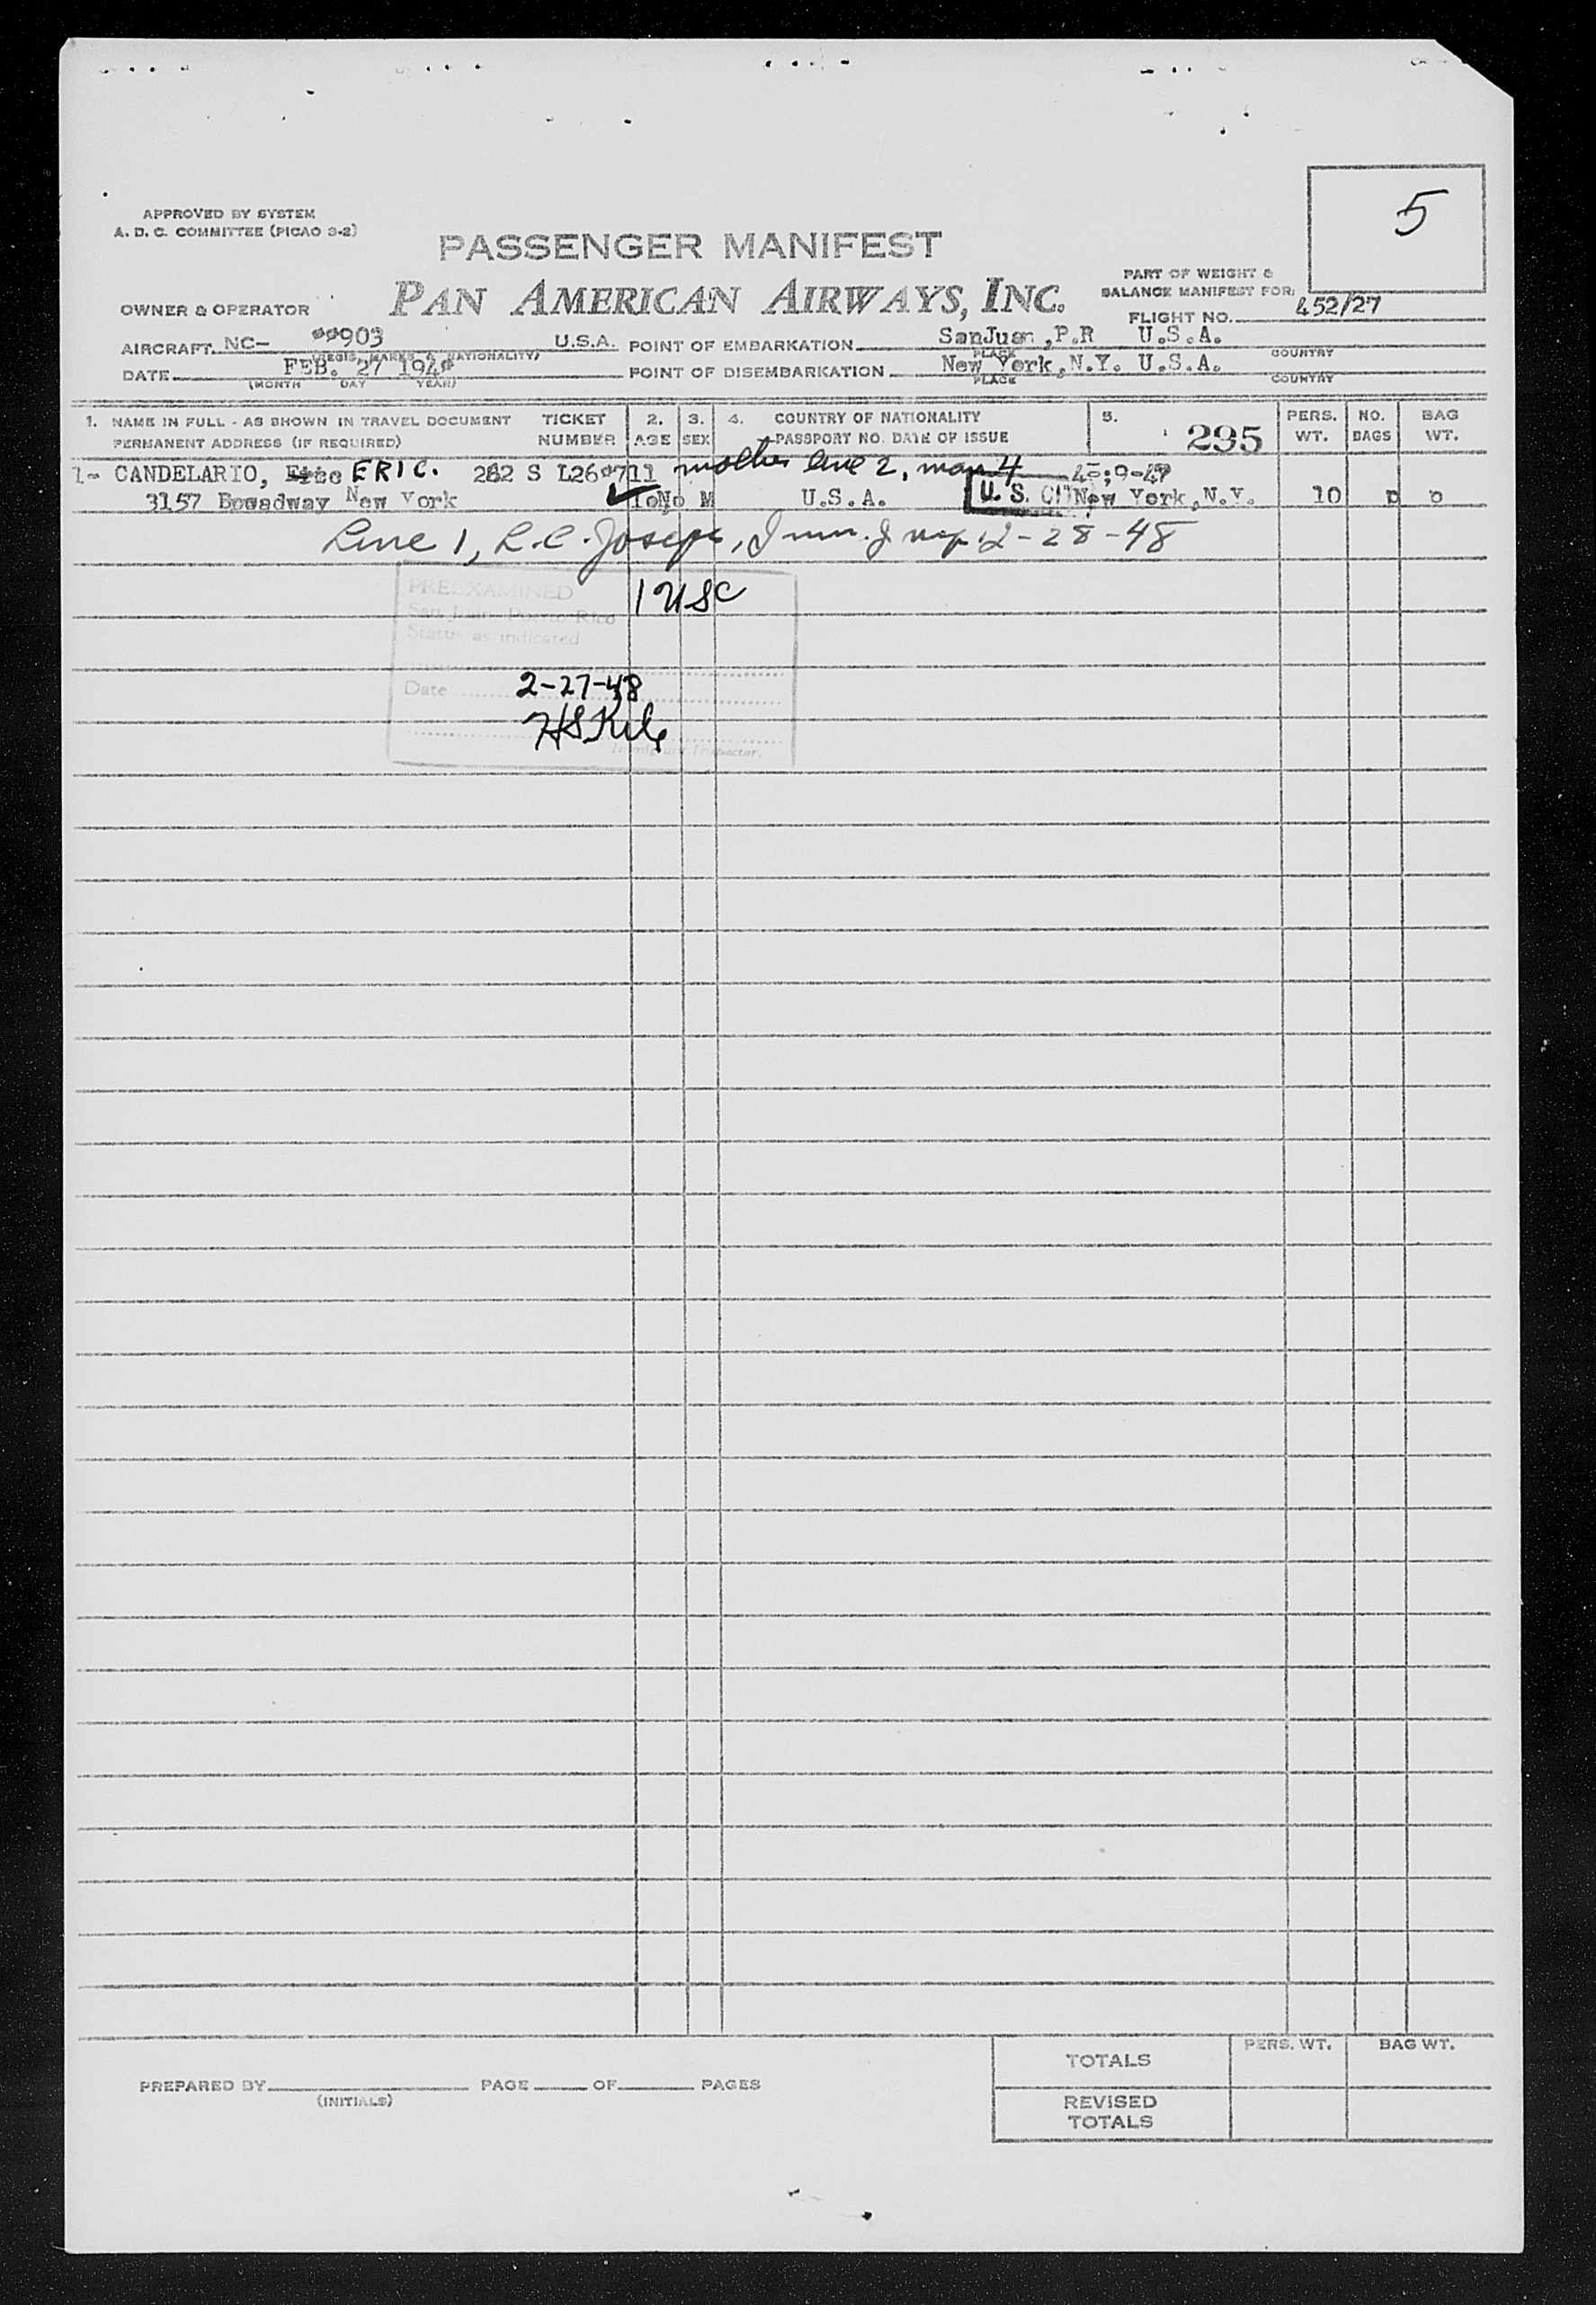 5
APPROVED BY SYSTEM
A. D. C. COMMITTEE (PICAO 3-2)
PASSENGER MANIFEST
PAN AMERICAN AIRWAYS, INC.
PART OF WEIGHT &
BALANCE MANIFEST FOR:
OWNER & OPERATOR
FLIGHT NO. 452/27
AIRCRAFT NC- 903 U.S.A. POINT OF EMBARKATION SanJuan, P.R U.S.A.
(REGIS. MARKS & NATIONALITY) PLACE COUNTRY
DATE FEB. 27 POINT OF DISEMBARKATION New York, N.Y. U.S.A.
(MONTH DAY YEAR) PLACE COUNTRY
1. NAME IN FULL - AS SHOWN IN TRAVEL DOCUMENT TICKET 2. 3. 4. COUNTRY OF NATIONALITY 5. PERS. NO. BAG
PERMANENT ADDRESS (IF REQUIRED) NUMBER AGE SEX PASSPORT NO. DATE OF ISSUE 295 WT. BAGS WT.
1- CANDELARIO, ERIC. 282 S mother line 2, man 4
3157 Bowadway New York M U.S.A. U. S. New York, N.Y. 10 o
Line 1, L.C. Joseph, Imm. Insp. 2-28-48
PREEXAMINED 1 USC
San Juan, Puerto Rico
Status as indicated
Date 2-27-48
Immigrant Inspector.
TOTALS PERS. WT. BAG WT.
PREPARED BY PAGE OF PAGES
(INITIALS)
REVISED
TOTALS